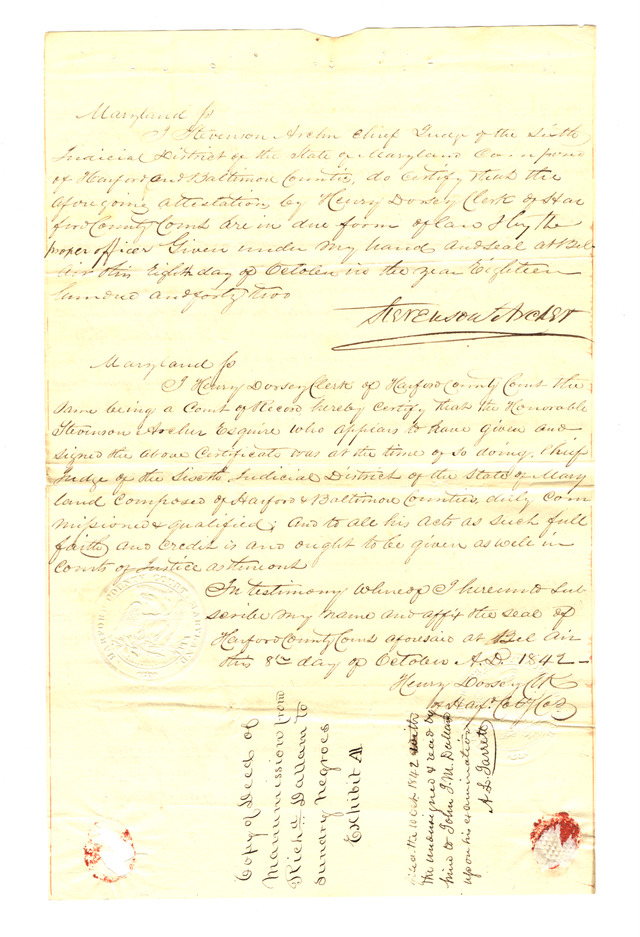 Maryland ss
I Stevenson Archer Chief Judge of the Sixth
Judicial District of the State of Maryland Composed
of Harford and Baltimore Counties, do Certify that the
aforegoing attestation, by Henry Dorsey Clerk of Har
ford County Court are in due form of law & by the
proper officer Given under my hand and seal at Bel
Air this Eighth day of October in the year Eighteen
hundred and forty two
Stevenson Archer
Maryland ss
I Henry Dorsey Clerk of Harford County Court the
same being a Court of Record hereby Certify that the Honorable
Stevenson Archer Esquire who appears to have given and
signed the above Certificate was at the time of so doing, Chief
Judge of the Sixth Judicial District of the State of Mary
land Composed of Harford & Baltimore Counties, duly com
missioned & qualified; and to all his acts as such full
faith and credit is and ought to be given as well in
Courts of Justice as thereout
In testimony whereof I hereunto sub
scribe my name and affix the seal of
Harford County Court aforesaid at Bel Air
this 8th day of October A.D. 1842 -
Henry Dorsey Clk
of Harfd Coty Cot
HARFORD COUNTY COURT MARYLAND
Copy of Deed of
Manumission from
Richd Dallam to
sundry negroes
Exhibit A
the 10 Oct 1842 with
the undersigned & read by
him to John J. M. Dallam
upon his examination
A L Jarrett